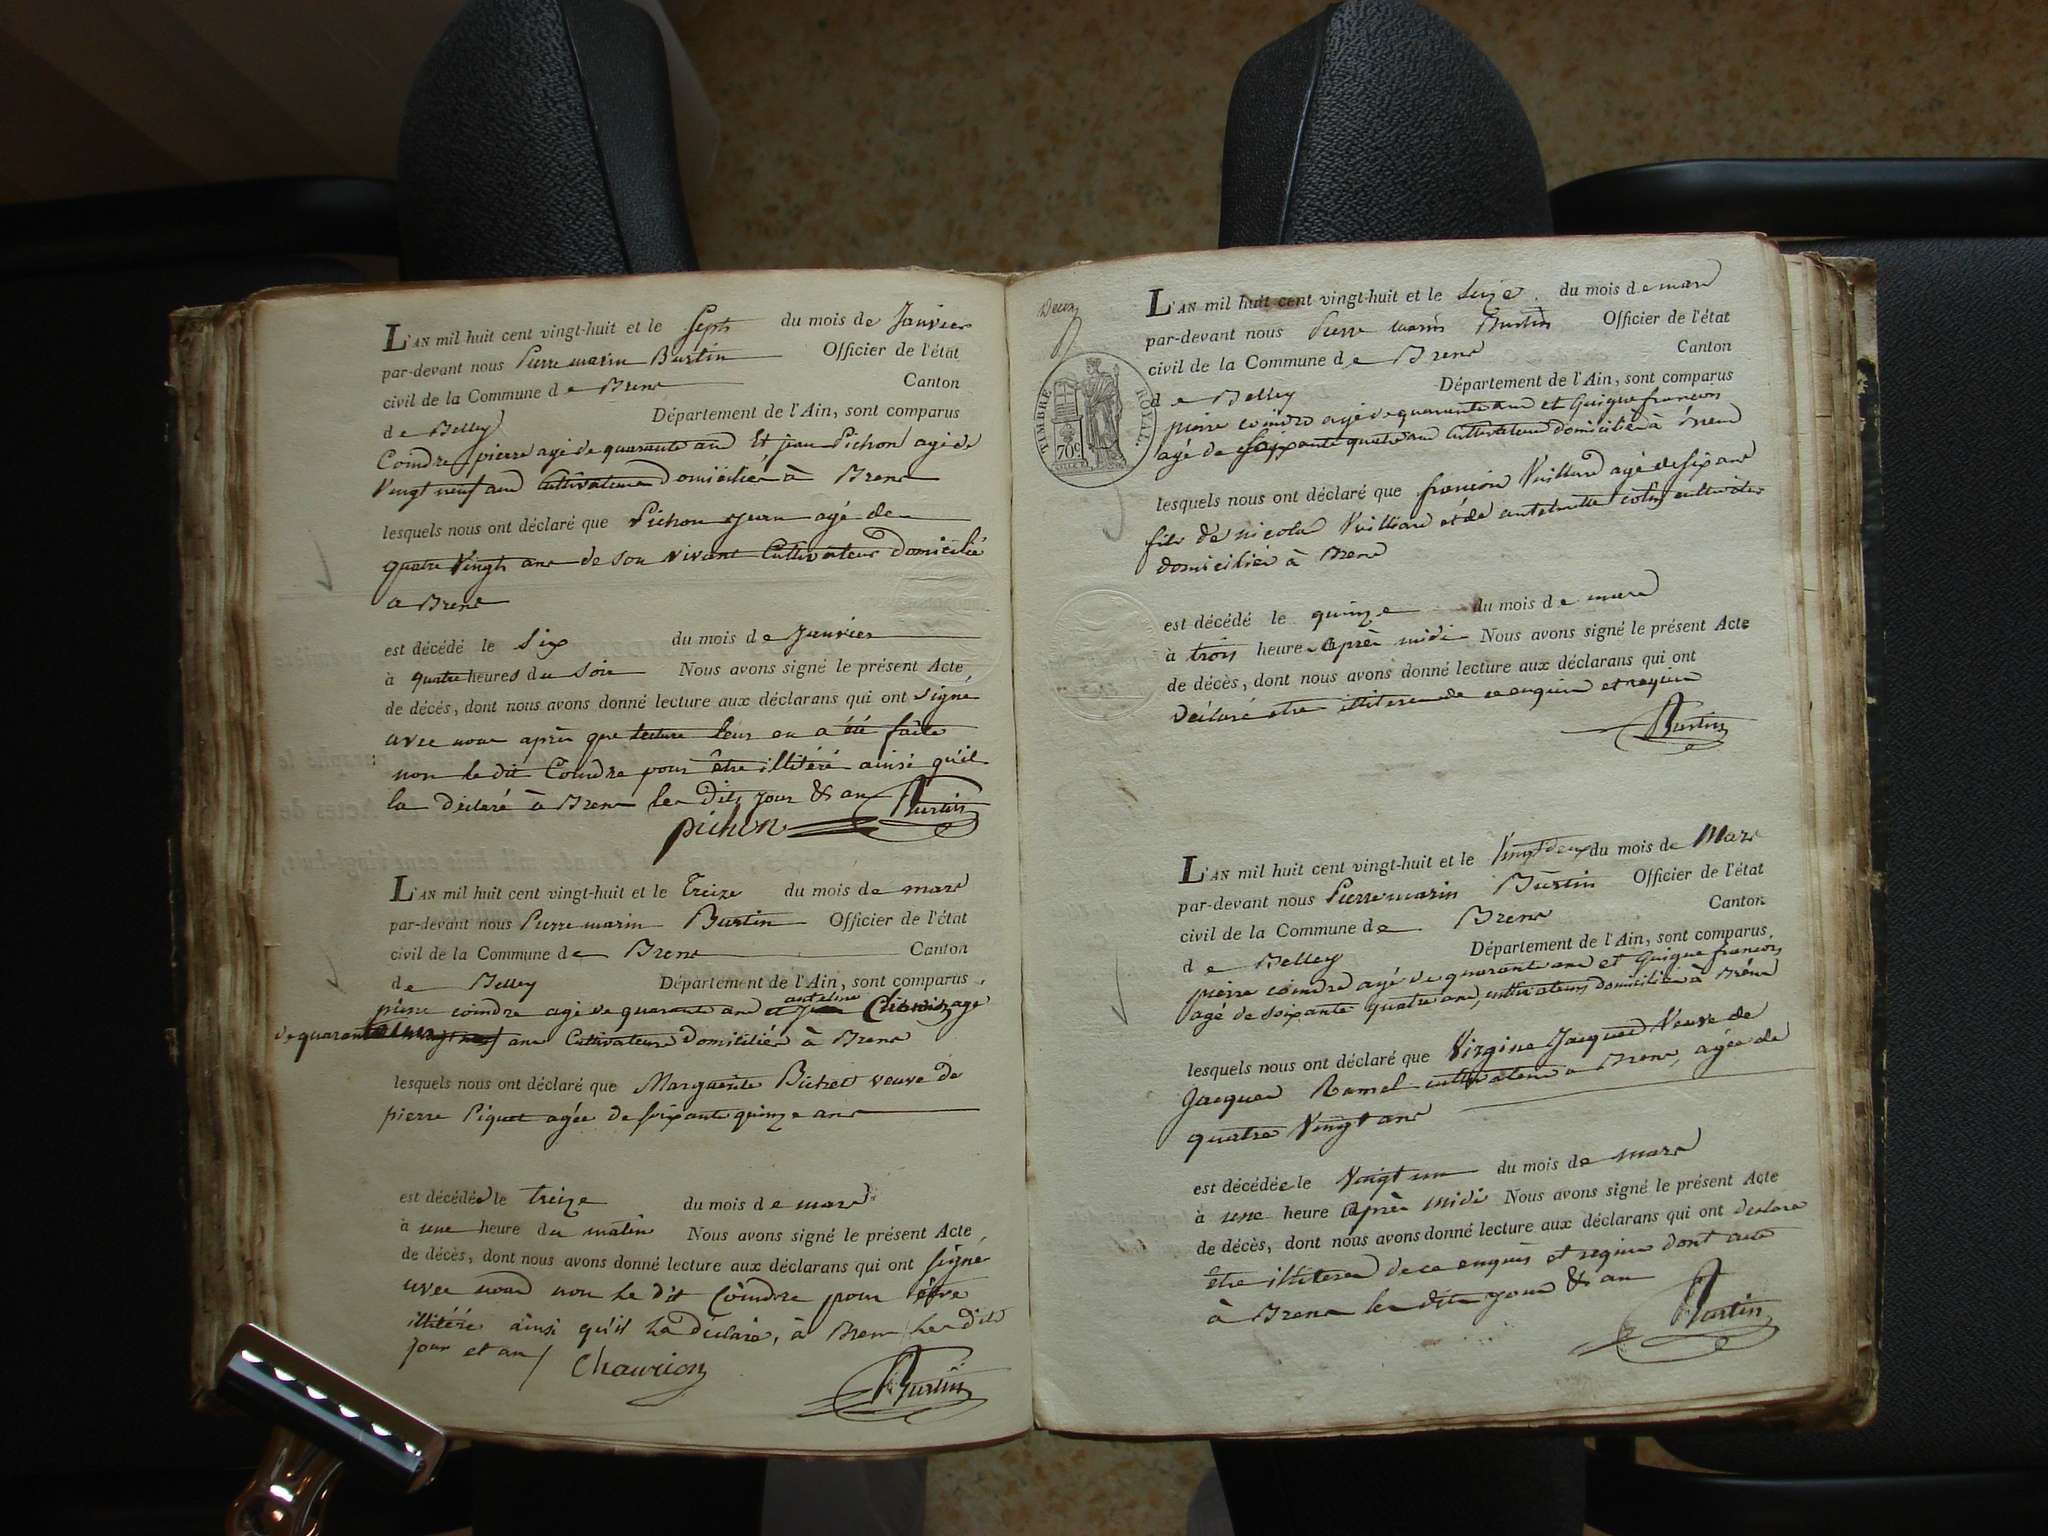 L'AN mil huit cent vingt-huit et le Sept du mois de Janvier
par-devant nous Pierre marin Burtin Officier de l'état
civil de la Commune de Brens Canton
de Belley Département de l'Ain, sont comparus
Coindre pierre agé de quarante ans Et jean Pichon agé de
Vingt neuf ans Cultivateurs domicilié à Brens
lesquels nous ont déclaré que Pichon Jean agé de
quatre Vingts ans de son vivant Cultivateur domicilié
a Brens
est décédé le Six du mois de Janvier
à quatre heures du soir Nous avons signé le présent Acte
de décès, dont nous avons donné lecture aux déclarans qui ont signé
avec nous après que lecture leur en a été faite
non le dit Coindre pour être illitéré ainsi qu'il
la déclaré à Brens les Dits jour & an Burtin
pichon
L'AN mil huit cent vingt-huit et le Treize du mois de mars
par-devant nous Pierre marin Burtin Officier de l'état
civil de la Commune de Brens Canton
de Belley Département de l'Ain, sont comparus
pierre coindre agé de quarante ans et antelme agé
de quarante ans Cultivateurs Domicilié à Brens
lesquels nous ont déclaré que Marguerite veuve de
pierre Piquet agée de soixante quinze ans
est décédée le treize du mois de mars
à une heure du matin Nous avons signé le présent Acte
de décès, dont nous avons donné lecture aux déclarans qui ont signé
avec nous non le dit Coindre pour être
illitéré ainsi qu'il la déclaré, à Brens les dits
jour et an / Chaurion
Burtin
Deux
TIMBRE ROYAL
70c
L'AN mil huit cent vingt-huit et le seize du mois de mars
par-devant nous Pierre marin Burtin Officier de l'état
civil de la Commune de Brens Canton
de Belley Département de l'Ain, sont comparus
pierre coindre agé de quarante ans et Guigue françois
agé de soixante quatre ans Cultivateurs domicilié à Brens
lesquels nous ont déclaré que françois Vuilliard agé de six ans
fils de nicolas Vuilliard et de antelmette cultivateur
domicilié à Brens
est décédé le quinze du mois de mars
à trois heure après midi Nous avons signé le présent Acte
de décès, dont nous avons donné lecture aux déclarans qui ont
déclaré etre illiteré de ce enquis et requis
Burtin
L'AN mil huit cent vingt-huit et le Vingt deux du mois de Mars
par-devant nous Pierre marin Burtin Officier de l'état
civil de la Commune de Brens Canton
de Belley Département de l'Ain, sont comparus
pierre coindre agé de quarante ans et Guigue françois
agé de soixante quatre ans, cultivateurs domicilié à Brens
lesquels nous ont déclaré que Virgine Jacquet Veuve de
Jacques Ramel cultivateur a Brens, agée de
quatre Vingt ans
est décédée le Vingt un du mois de mars
à une heure après midi Nous avons signé le présent Acte
de décès, dont nous avons donné lecture aux déclarans qui ont declaré
être illiteré de ce enquis et requis dont acte
à Brens les dits jour & an
Burtin